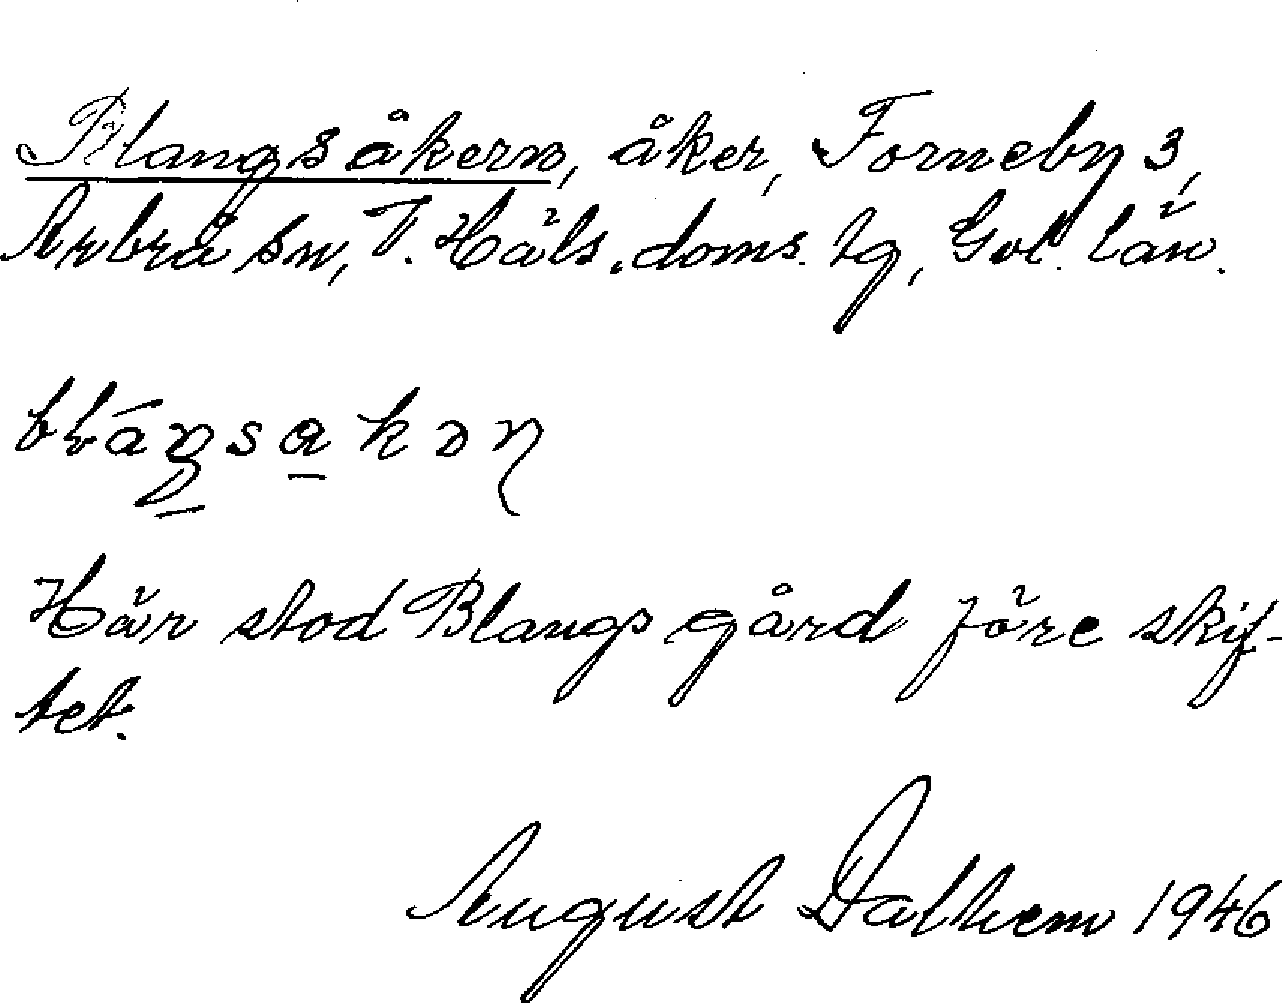 Blangsåkern, åker, Forneby 3,
Arbrå sn, V. Häls. doms. tg, Gvl. län.
bláŋsakəɳ
Här stod Blangs gård före skif-
tet.
August Dalhem 1946